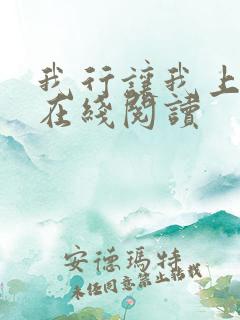 我行讓我上
在綫閱讀
安德瑪特
未經同意禁止轉載